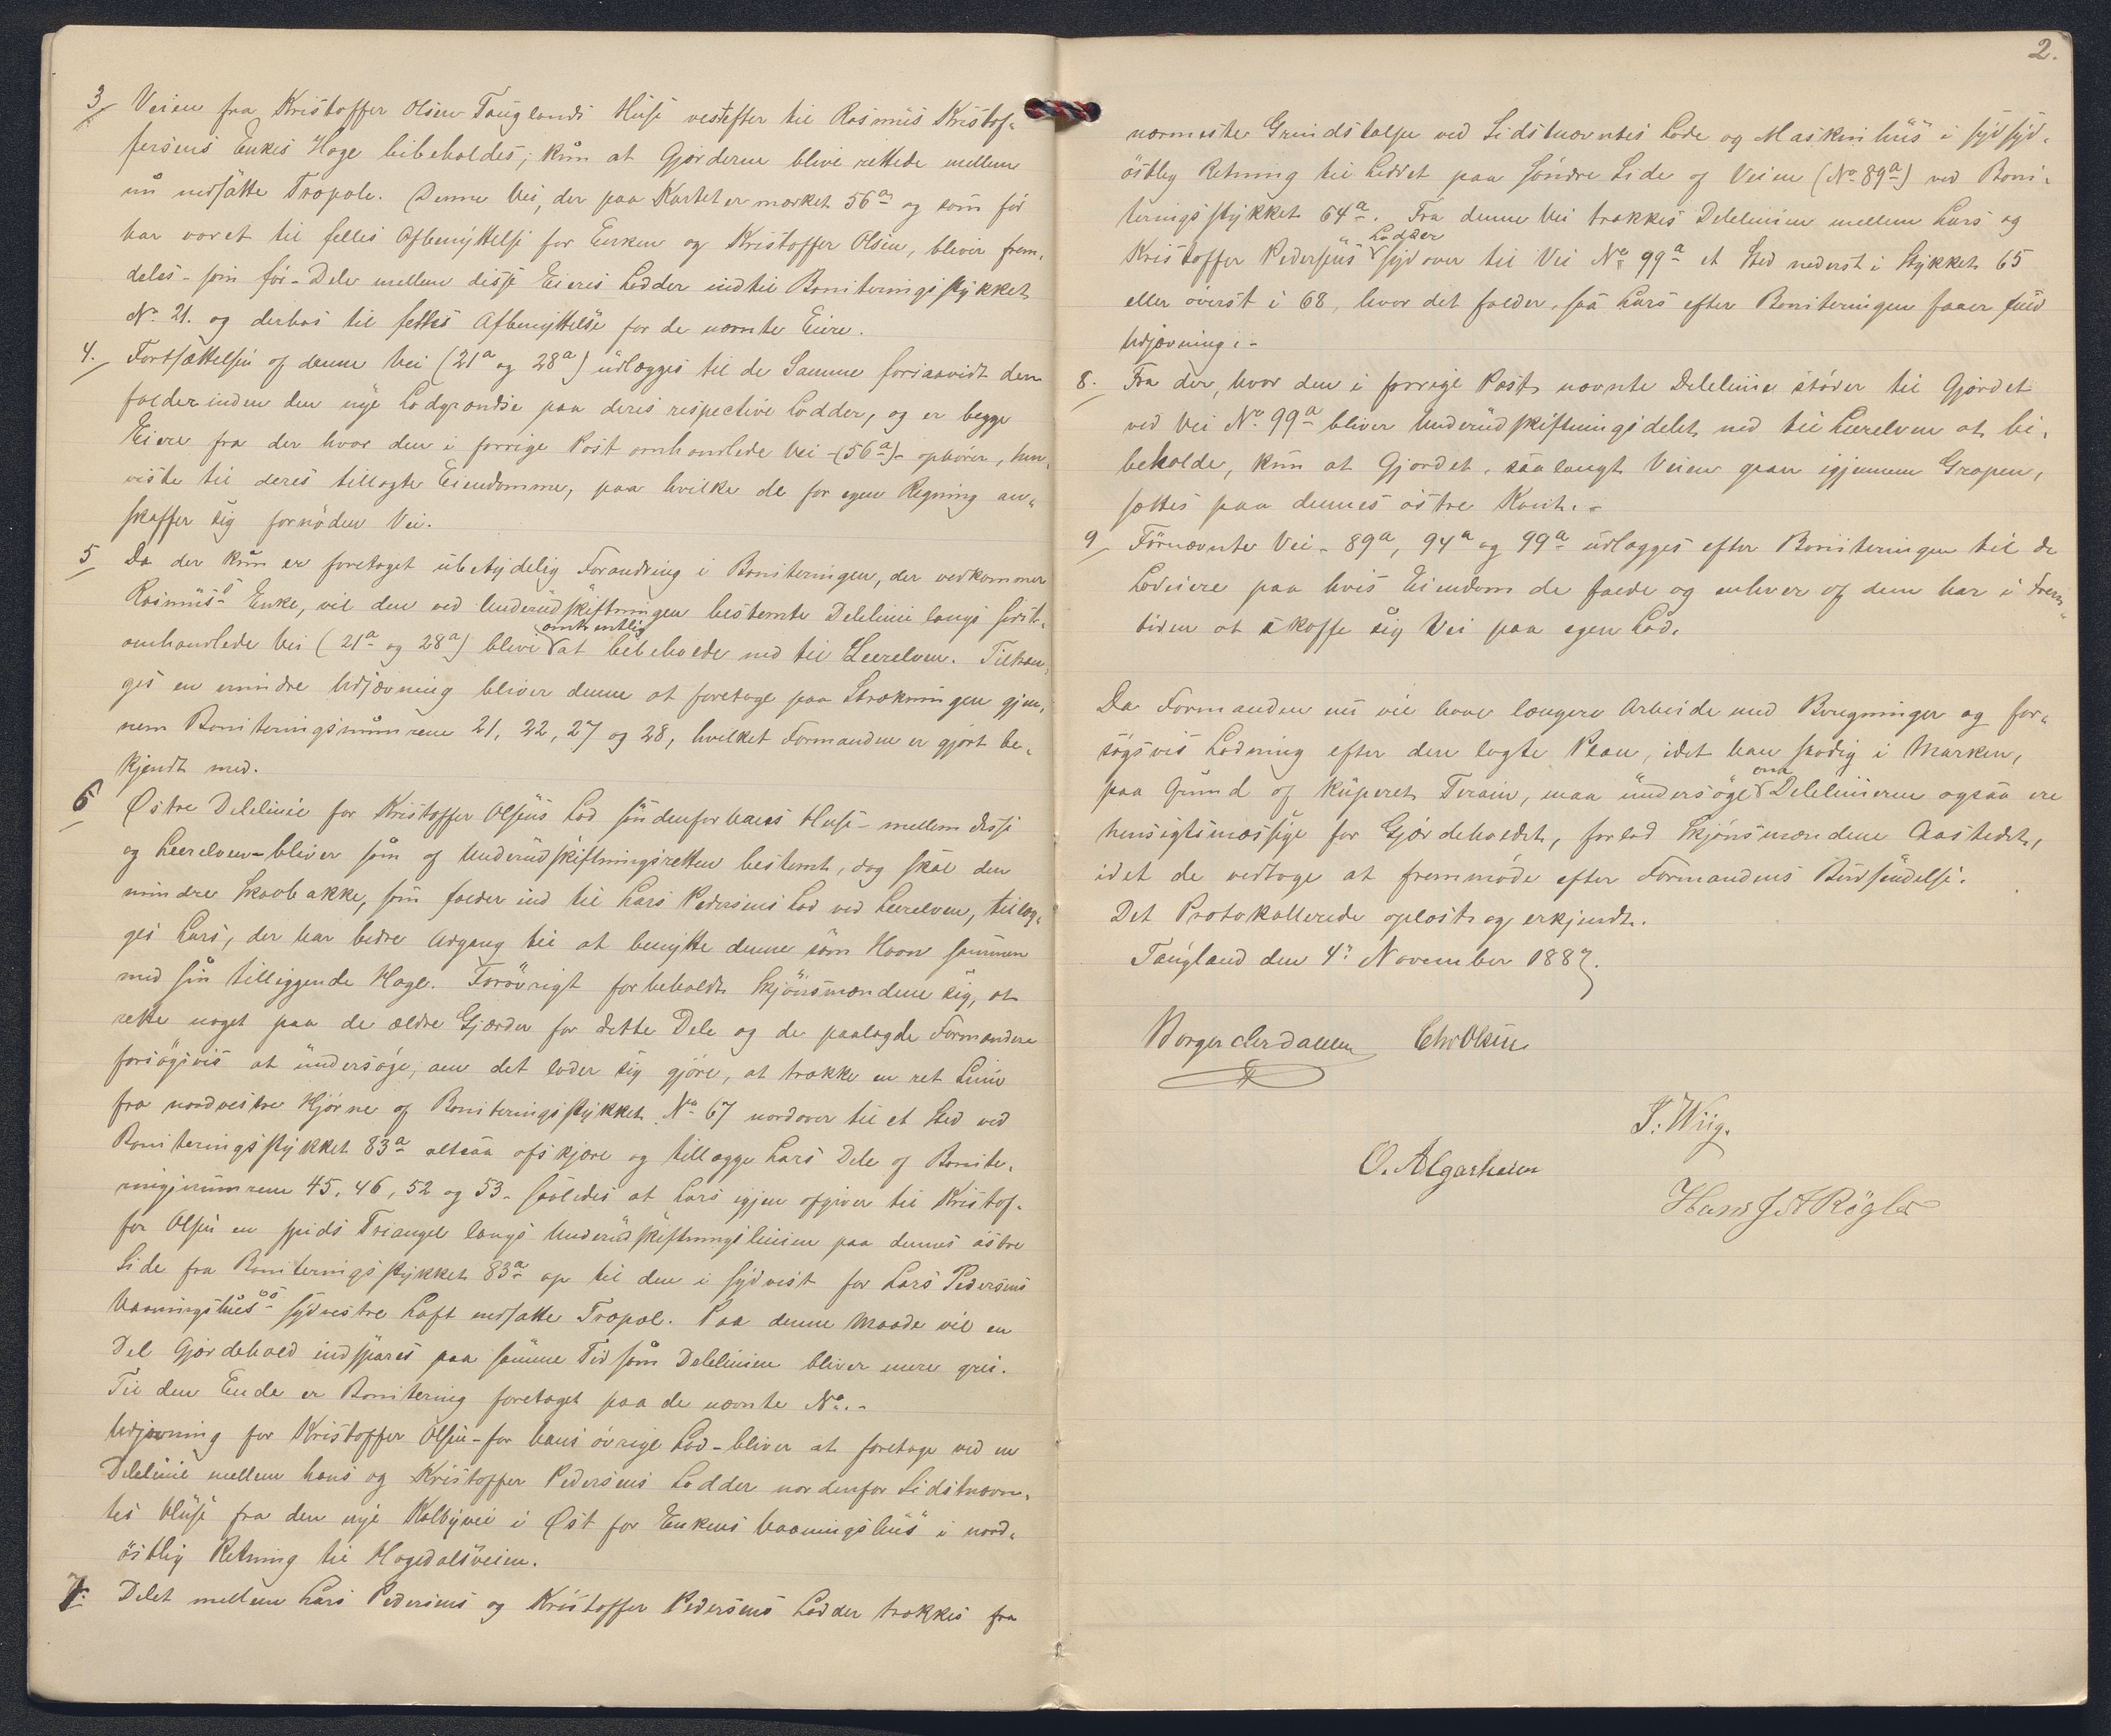 3/ Veien fra Kristoffer Olsen Tauglands Huse vestefter til Rasmus Kristof-
fersens Enkes Hage bibeholdes; kun at Gjærderne blive rettede mellem
nu nedsatte Træpæle. Denne Vei, der paa Kartet er mærket 56a og som før
har været til felles Afbenyttelse for Enken og Kristoffer Olsen, bliver frem-
deles - som før - Dele mellem disse Eieres Lodder indtil Boniteringsstykket
No 21. og derhos til felles Afbenyttelse for de nævnte Eiere.
4./ Fortsættelsen af denne Vei (21a og 28a) udlægges til de Samme forsaavidt den
falder inden den nye Lodgrændse paa deres respective Lodder, og er begge
Eiere fra der hvor den i forrige Post omhandlede Vei - (56a) - ophører, hen-
viste til deres tillagte Eiendomme, paa hvilke de for egen Regning an-
skaffer sig fornøden Vei.
5/ Da der kun er foretaget ubetydelig Forandring i Boniteringen, der vedkommer
Rasmus's Enke, vil den ved Underudskiftningen bestemte Delelinie langs sidst-
omhandlede Vei (21a og 28a) blive omtrentlig at bibeholde ned til Leerelven. Tiltræn-
ges en mindre Udjævning bliver denne at foretage paa Strækningen gjen-
nem Boniteringsnumrene 21, 22, 27 og 28, hvilket Formanden er gjort be-
kjendt med.
6/ Østre Delelinie for Kristoffer Olsens Lod søndenfor hans Huse - mellem disse
og Leerelven - bliver som af Underudskiftningsretten bestemt, dog skal den
mindre Skovbakke, som falder ind til Lars Pedersens Lod ved Leerelven, tillæg-
ges Lars, der har bedre Adgang til at benytte denne som Havn sammen
med sin tilliggende Hage. Forøvrigt forbeholdt Skjønsmændene sig, at
rette noget paa de ældre Gjærder for dette Dele og de paalagde Formanden
forsøgsvis at undersøge, om det lader sig gjøre, at trække en ret Linie
fra nordvestre Hjørne af Boniteringsstykket No 67 nordover til et Sted ved
Boniteringsstykket 83a altsaa afskjære og tillægge Lars Dele af Bonite-
ringsnumrene 45, 46, 52 og 53 - saaledes at Lars igjen afgiver til Kristof-
fer Olsen en spids Triangel langs Underudskiftningslinien paa dennes østre
Side fra Boniteringsstykket 83a op til den i sydvest for Lars Pedersens
Vaaningshus's sydvestre Laft nedsatte Træpæl. Paa denne Maade vil en
Del Gjærdehold indspares paa samme Tid som Delelinien bliver mere grei.
Til den Ende er Bonitering foretaget paa de nævnte No. -
Udjævning for Kristoffer Olsen - for hans øvrige Lod - bliver at foretage ved en
Delelinie mellem hans og Kristoffer Pedersens Lodder nordenfor Sidstnævn-
tes Huse fra den nye Kolbyvei i Øst for Enkens Vaaningshus i nord-
østlig Retning til Hagedalsveien.
7. Delet mellem Lars Pedersens og Kristoffer Pedersens Lodder trækkes fra
2.
nærmeste Grundstolpe ved Sidstnævntes Lade og Maskinhus i sydsyd-
østlig Retning til Leddet paa søndre Side af Veien (No 89a) ved Boni-
teringsstykket 64a. Fra denne Vei trækkes Delelinien mellem Lars og
Kristoffer Pedersens Lodder sydover til Vei No 99a et Sted nederst i Stykket 65
eller øverst i 68, hvor det falder, saa Lars efter Boniteringen faaer fuld
Udjævning. -
8./ Fra der, hvor den i forrige Post nævnte Delelinie støder til Gjærdet
ved Vei No 99a bliver Underudskiftningsdelet ned til Leerelven at bi-
beholde, kun at Gjærdet, saalangt Veien gaar igjennem Gropen,
sættes paa dennes østre Kant. -
9/ Førnævnte Vei - 89a, 94a og 99a udlægges efter Boniteringen til de
Lodeiere paa hvis Eiendom de falde og enhver af dem har i Frem-
tiden at skaffe sig Vei paa egen Lod.
Da Formanden nu vil have længere Arbeide med Beregninger og for-
søgsvis Lodning efter den lagte Plan, idet han stadig i Marken,
paa Grund af kuperet Terain, maa undersøge om Delelinierne ogsaa ere
hensigtsmæssige for Gjærdeholdet, forlod Skjønsmændene Aastedet,
idet de vedtoge at fremmøde efter Formandens Budsendelse.
Det Protokollerede oplæst og erkjendt.
Taugland den 4de November 1887.
Chr Olsen
J. Wiig.
O. Algarheim